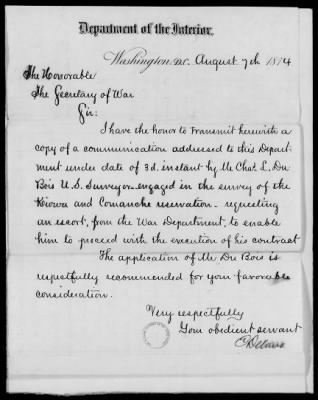 Department of the Interior,
Washington D.C. August 7th 1874
The Honorable
The Secretary of War
Sir:
I have the honor to transmit herewith a
copy of a communication addressed to this Depart-
ment under date of 3d. instant by Mr Chas. L. Du
Bois U.S. Surveyor engaged in the survey of the
Kiowa and Comanche reservation - requesting
an escort, from the War Department, to enable
him to proceed with the execution of his contract
The application of Mr Du Bois is
respectfully recommended for your favorable
consideration.
Very respectfully
Your obedient servant
C Delano